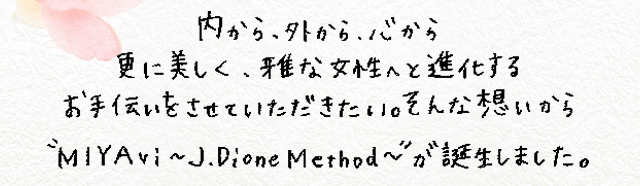 内から、外から、心から
更に美しく、雅な女性へと進化する
お手伝いをさせていただきたい。そんな想いから
“MIYAvi～J.Dione Method～”が誕生しました。